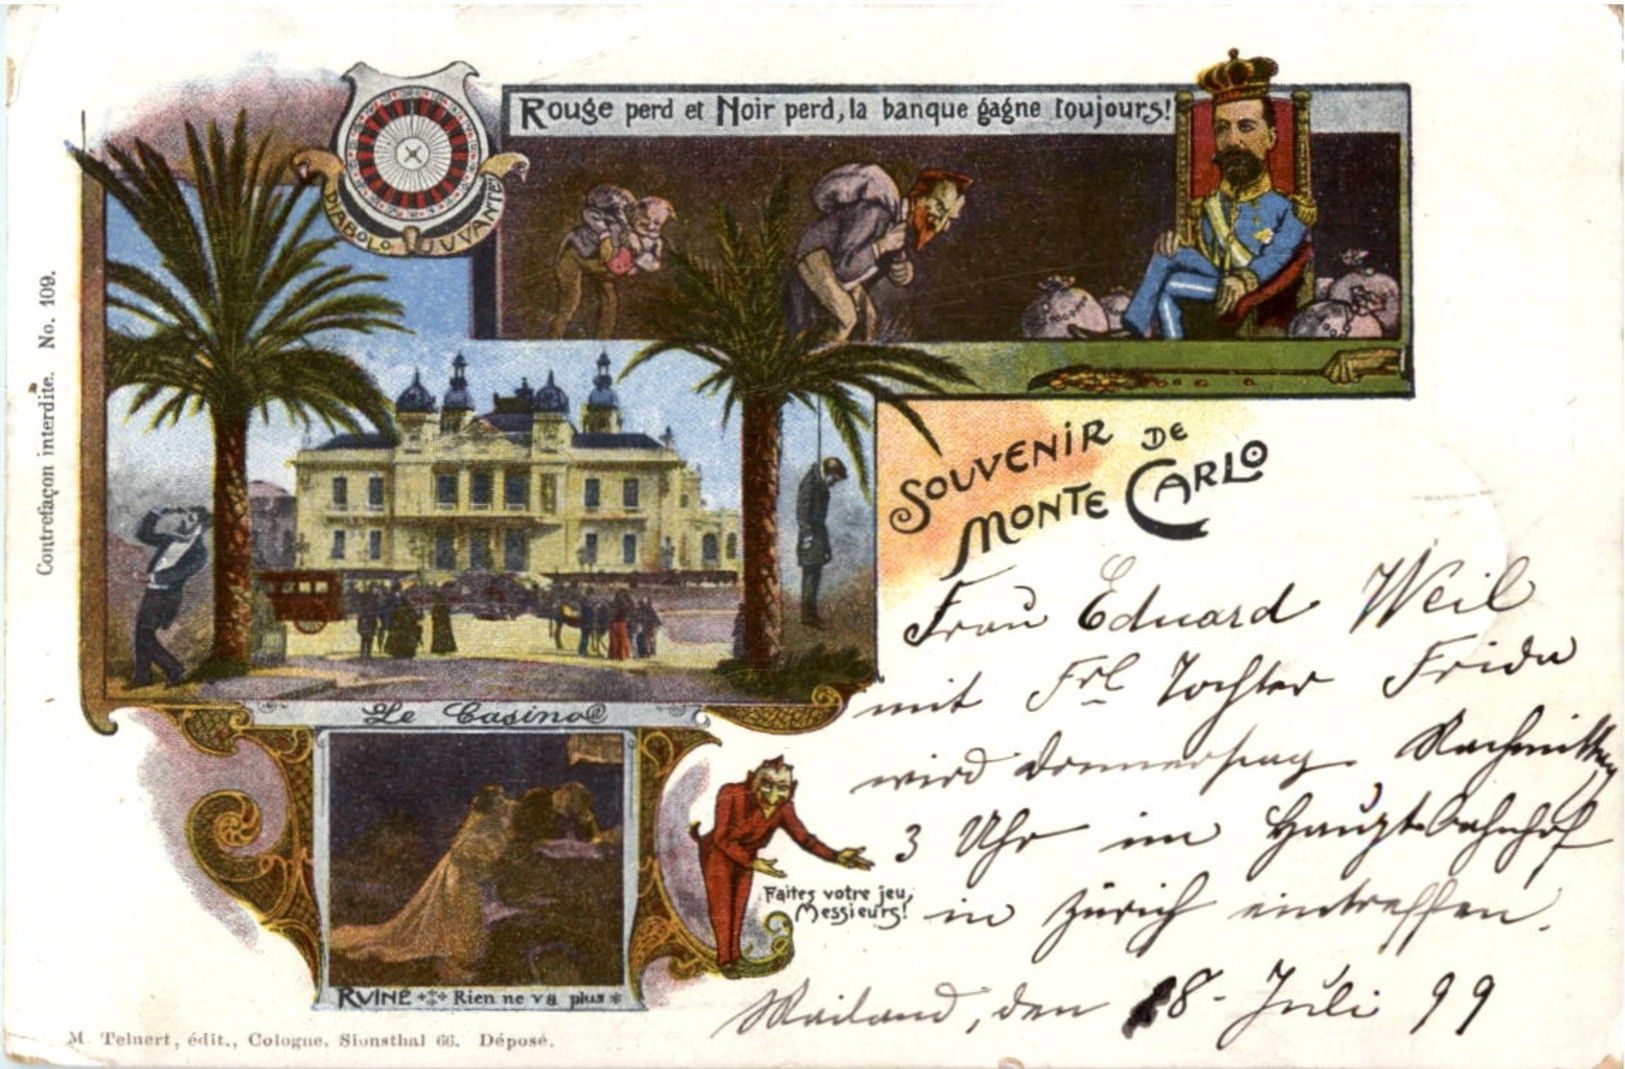 Rouge perd et Noir perd, la banque gagne toujours!
DIABOLO JUVANTE
Contrefaçon interdite. No. 109.
SOUVENIR DE
MONTE CARLO
Frau Eduard Weil
mit Frl Tochter Frida
wird Donnerstag Nachmittag
3 Uhr im Hauptbahnhof
in Zürich eintreffen.
Mailand, den 18 - Juli 99
Le Casino
Faites votre jeu,
Messieurs!
RUINÉ Rien ne va plus
M. Telnert, édit., Cologne, Sionsthal 66. Déposé.